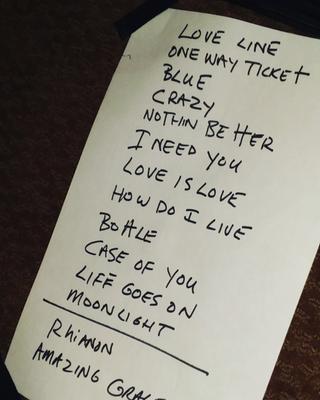 LOVE LINE
ONE WAY TICKET
BLUE
CRAZY
NOTHIN BETTER
I NEED YOU
LOVE IS LOVE
HOW DO I LIVE
BOTTLE
CASE OF YOU
LIFE GOES ON
MOONLIGHT
RHIANON
AMAZING GRACE